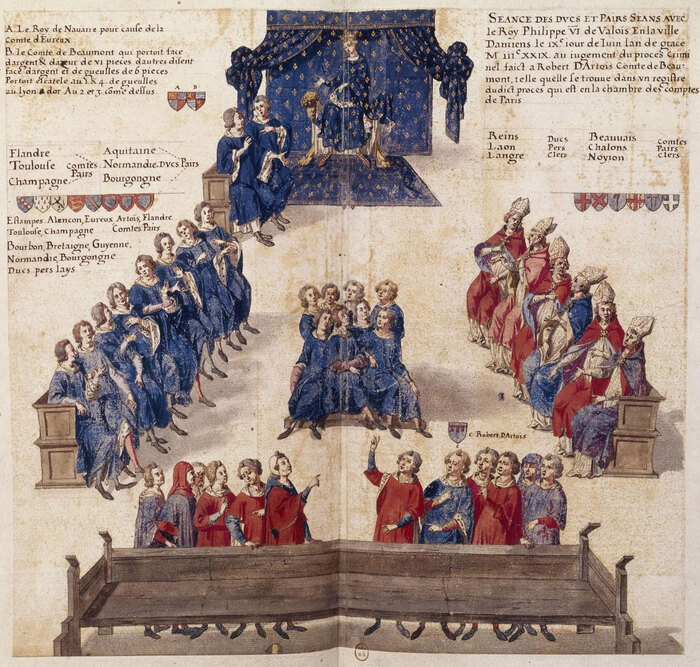 A. Le Roy de Nauarre pour cause de la
Comte d'Eureux
B. le Comte de Beaumont qui portoit face
dargent & dazur de VI pieces dautres disent
face dargent et de gueusles de 6 pieces
Portoit Escartele au 1 & 4. de gueusles
au lyon dor Au 2 et 3. come dessus.
A B
Flandre
Toulouse
Champagne
Comtes
Pairs
Aquitaine
Normandie
Bourgongne
Ducs Pairs
Estampes. Alencon, Eureux Artois, Flandre
Toulouse, Champagne Comtes Pairs
Bourbon, Bretaigne, Guyenne,
Normandie, Bourgongne
Ducs pers lays
SEANCE DES DVCS ET PAIRS SEANS AVEC
le Roy Philippe VI de Valois En la ville
Damiens le IXe iour de Iuin lan de grace
M IIIc XXIX. au iugement du proces Crimi
nel faict a Robert D'Artois Comte de Beau-
mont, telle quelle se trouue dans vn registre
dudict proces qui est en la chambre des comptes
de Paris
Reins
Laon
Langre
Ducs
Pers
Clers
Beauuais
Chalons
Noyion
Comtes
Pairs
Clers
C Robert D'Artois